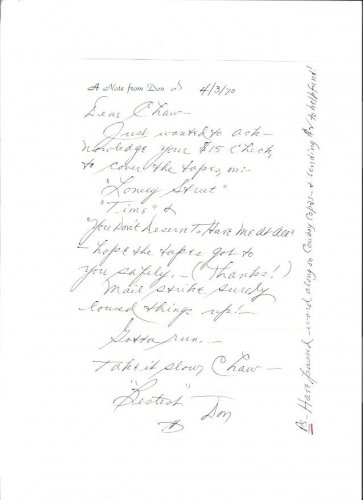 A Note from Don
4/3/70
Dear Chaw-
Just wanted to ack-
nowledge your $15 check,
to cover the tapes, on:-
"Lonely Street"
"Time" &
"You Don't Deserve To Have Me At All"
- hope the tapes got to
you safely. - (Thanks!)
Mail strike surely
loused things up! -
Gotta run. -
Take it slow, Chaw -
"Bestest" Don
PS - Have passed word along on Cowboy Copas - & sending to help fund!